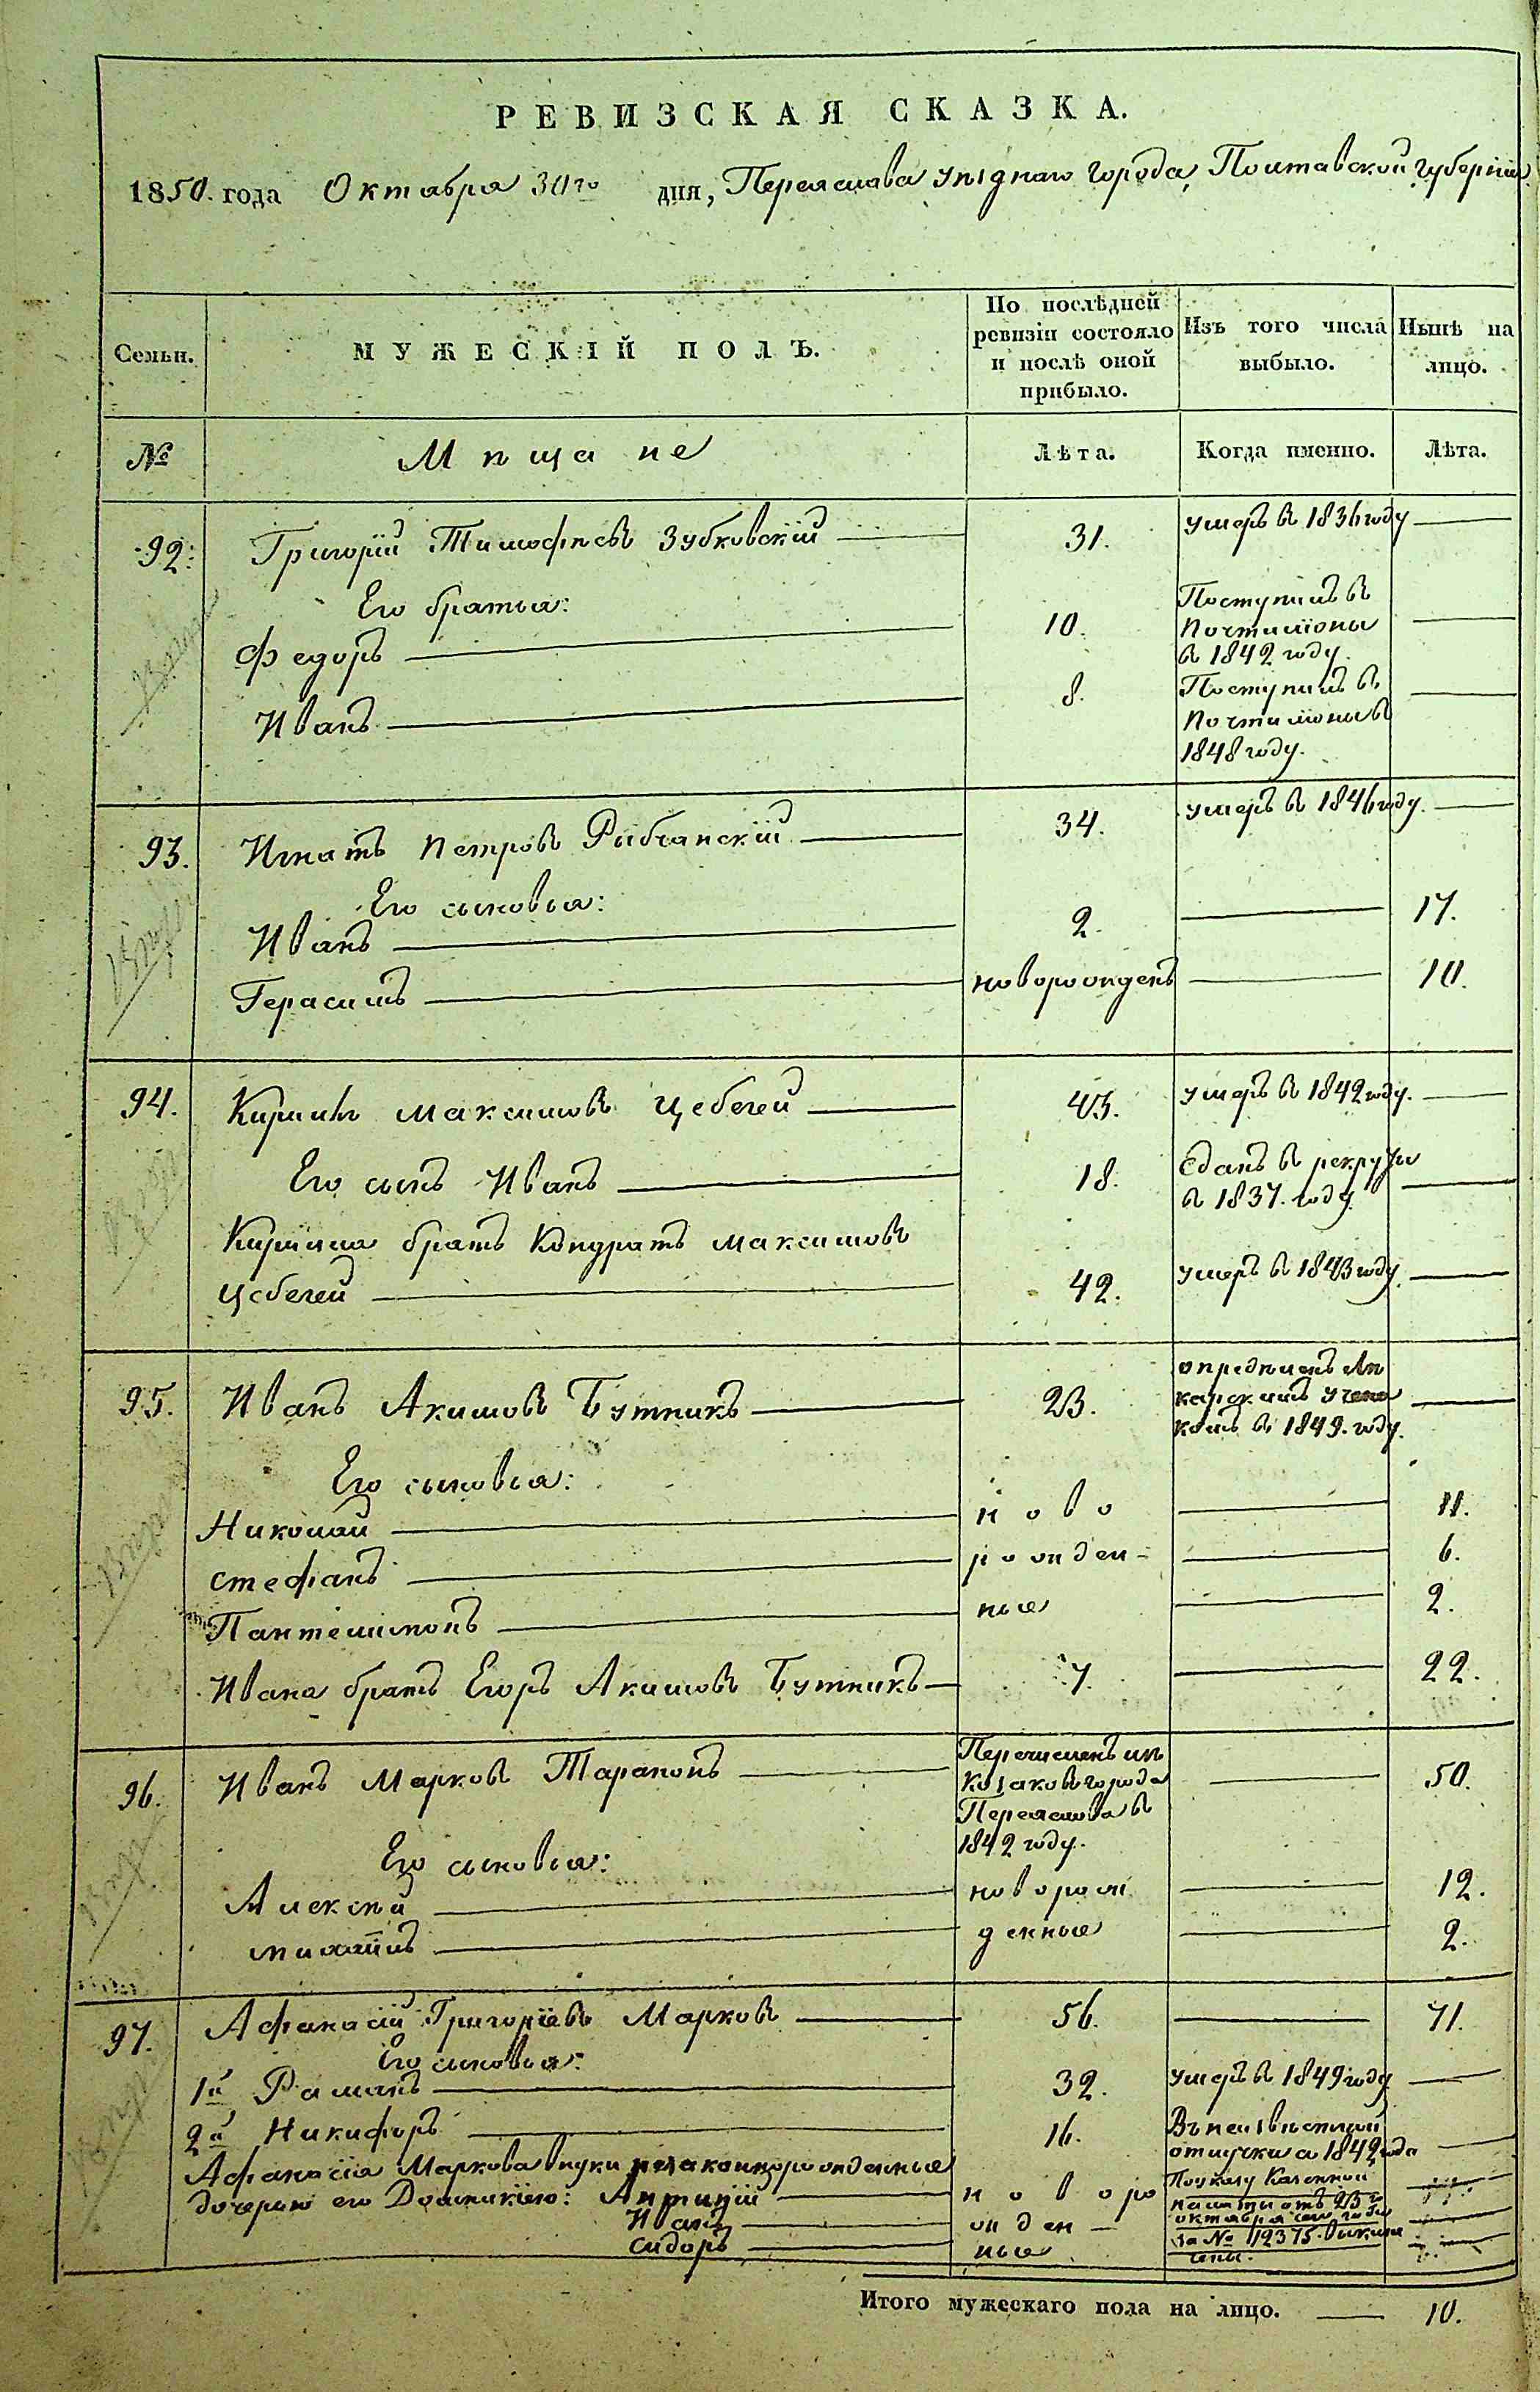 РЕВИЗСКАЯ СКАЗКА.
1850. года Октября 30го дня, Переяслава уѣзднаго города, Полтавской губерніи
Семьи.
МУЖЕСКІЙ ПОЛЪ.
По послѣдней ревизіи состояло и послѣ оной прибыло.
Изъ того числа выбыло.
Нынѣ на лицо.
№ Мѣщане Лѣта. Когда именно. Лѣта.
92. Григорій Тимофѣевъ Зубковскій 31. умеръ в 1836 году
Его братья:
Федоръ 10. Поступилъ в почталіоны в 1842 году.
Иванъ 8. Поступилъ в почталіоны в 1848 году.
93. Игнатъ Петровъ Рибчанскій 34. умеръ в 1846 году.
Его сыновья:
Иванъ 2. 17.
Герасимъ новорожденъ 10.
94. Кирилъ Максимовъ Цебегей 43. умеръ в 1842 году.
Его сынъ Иванъ 18. Сданъ в рекруты в 1837. году.
Кирила братъ Кондратъ Максимовъ
Цебегей 42. умеръ в 1843 году.
95. Иванъ Акимовъ Бутникъ 23. опредѣленъ лѣкарскимъ ученикомъ в 1849. году.
Его сыновья:
Николай ново 11.
Стефанъ рожден- 6.
Пантелимонъ ные 2.
Ивана братъ Егоръ Акимовъ Бутникъ 7. 22.
96. Иванъ Марковъ Тарапонъ Перечисленъ изъ козаковъ города Переяслова в 1842 году. 50.
Его сыновья:
Алексѣй новорож 12.
Михаилъ денные 2.
97. Афанасій Григоріевъ Марковъ 56. 71.
Его сыновья:
1й Раманъ 32. умеръ в 1849 году
2й Никифоръ 16. Въ неизвѣстной отлучки с 1842 года
Афанасія Маркова внуки незаконнорожденные
дочерью его Домникіею: Антипій новоро По указу Казенной
Иванъ жден- палаты отъ 23го октября сего года
Сидоръ ные за № 112375. виключены.
Итого мужескаго пола на лицо. 10.